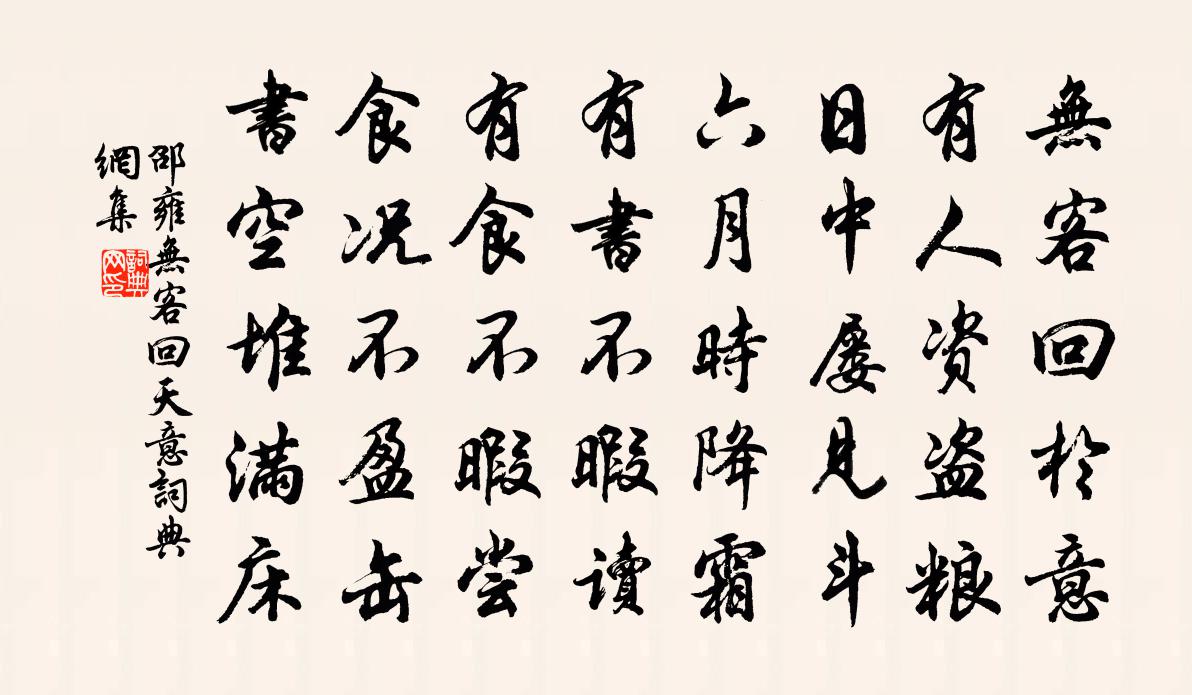 無客回於意
有人資盗粮
日中屡見斗
六月時降霜
有書不暇讀
有食不暇尝
食况不盈缶
書空堆满床
邵雍無客回天意詞典
網集
詞典
网印